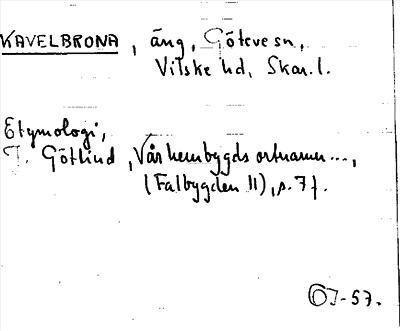 KAVELBRONA, äng, Göteve sn,
Vilske hd, Skar. l.
Etymologi,
J. Götlind, Vår hembygds ortnamn...,
(Falbygden II), s. 7 f.
OJ-57.